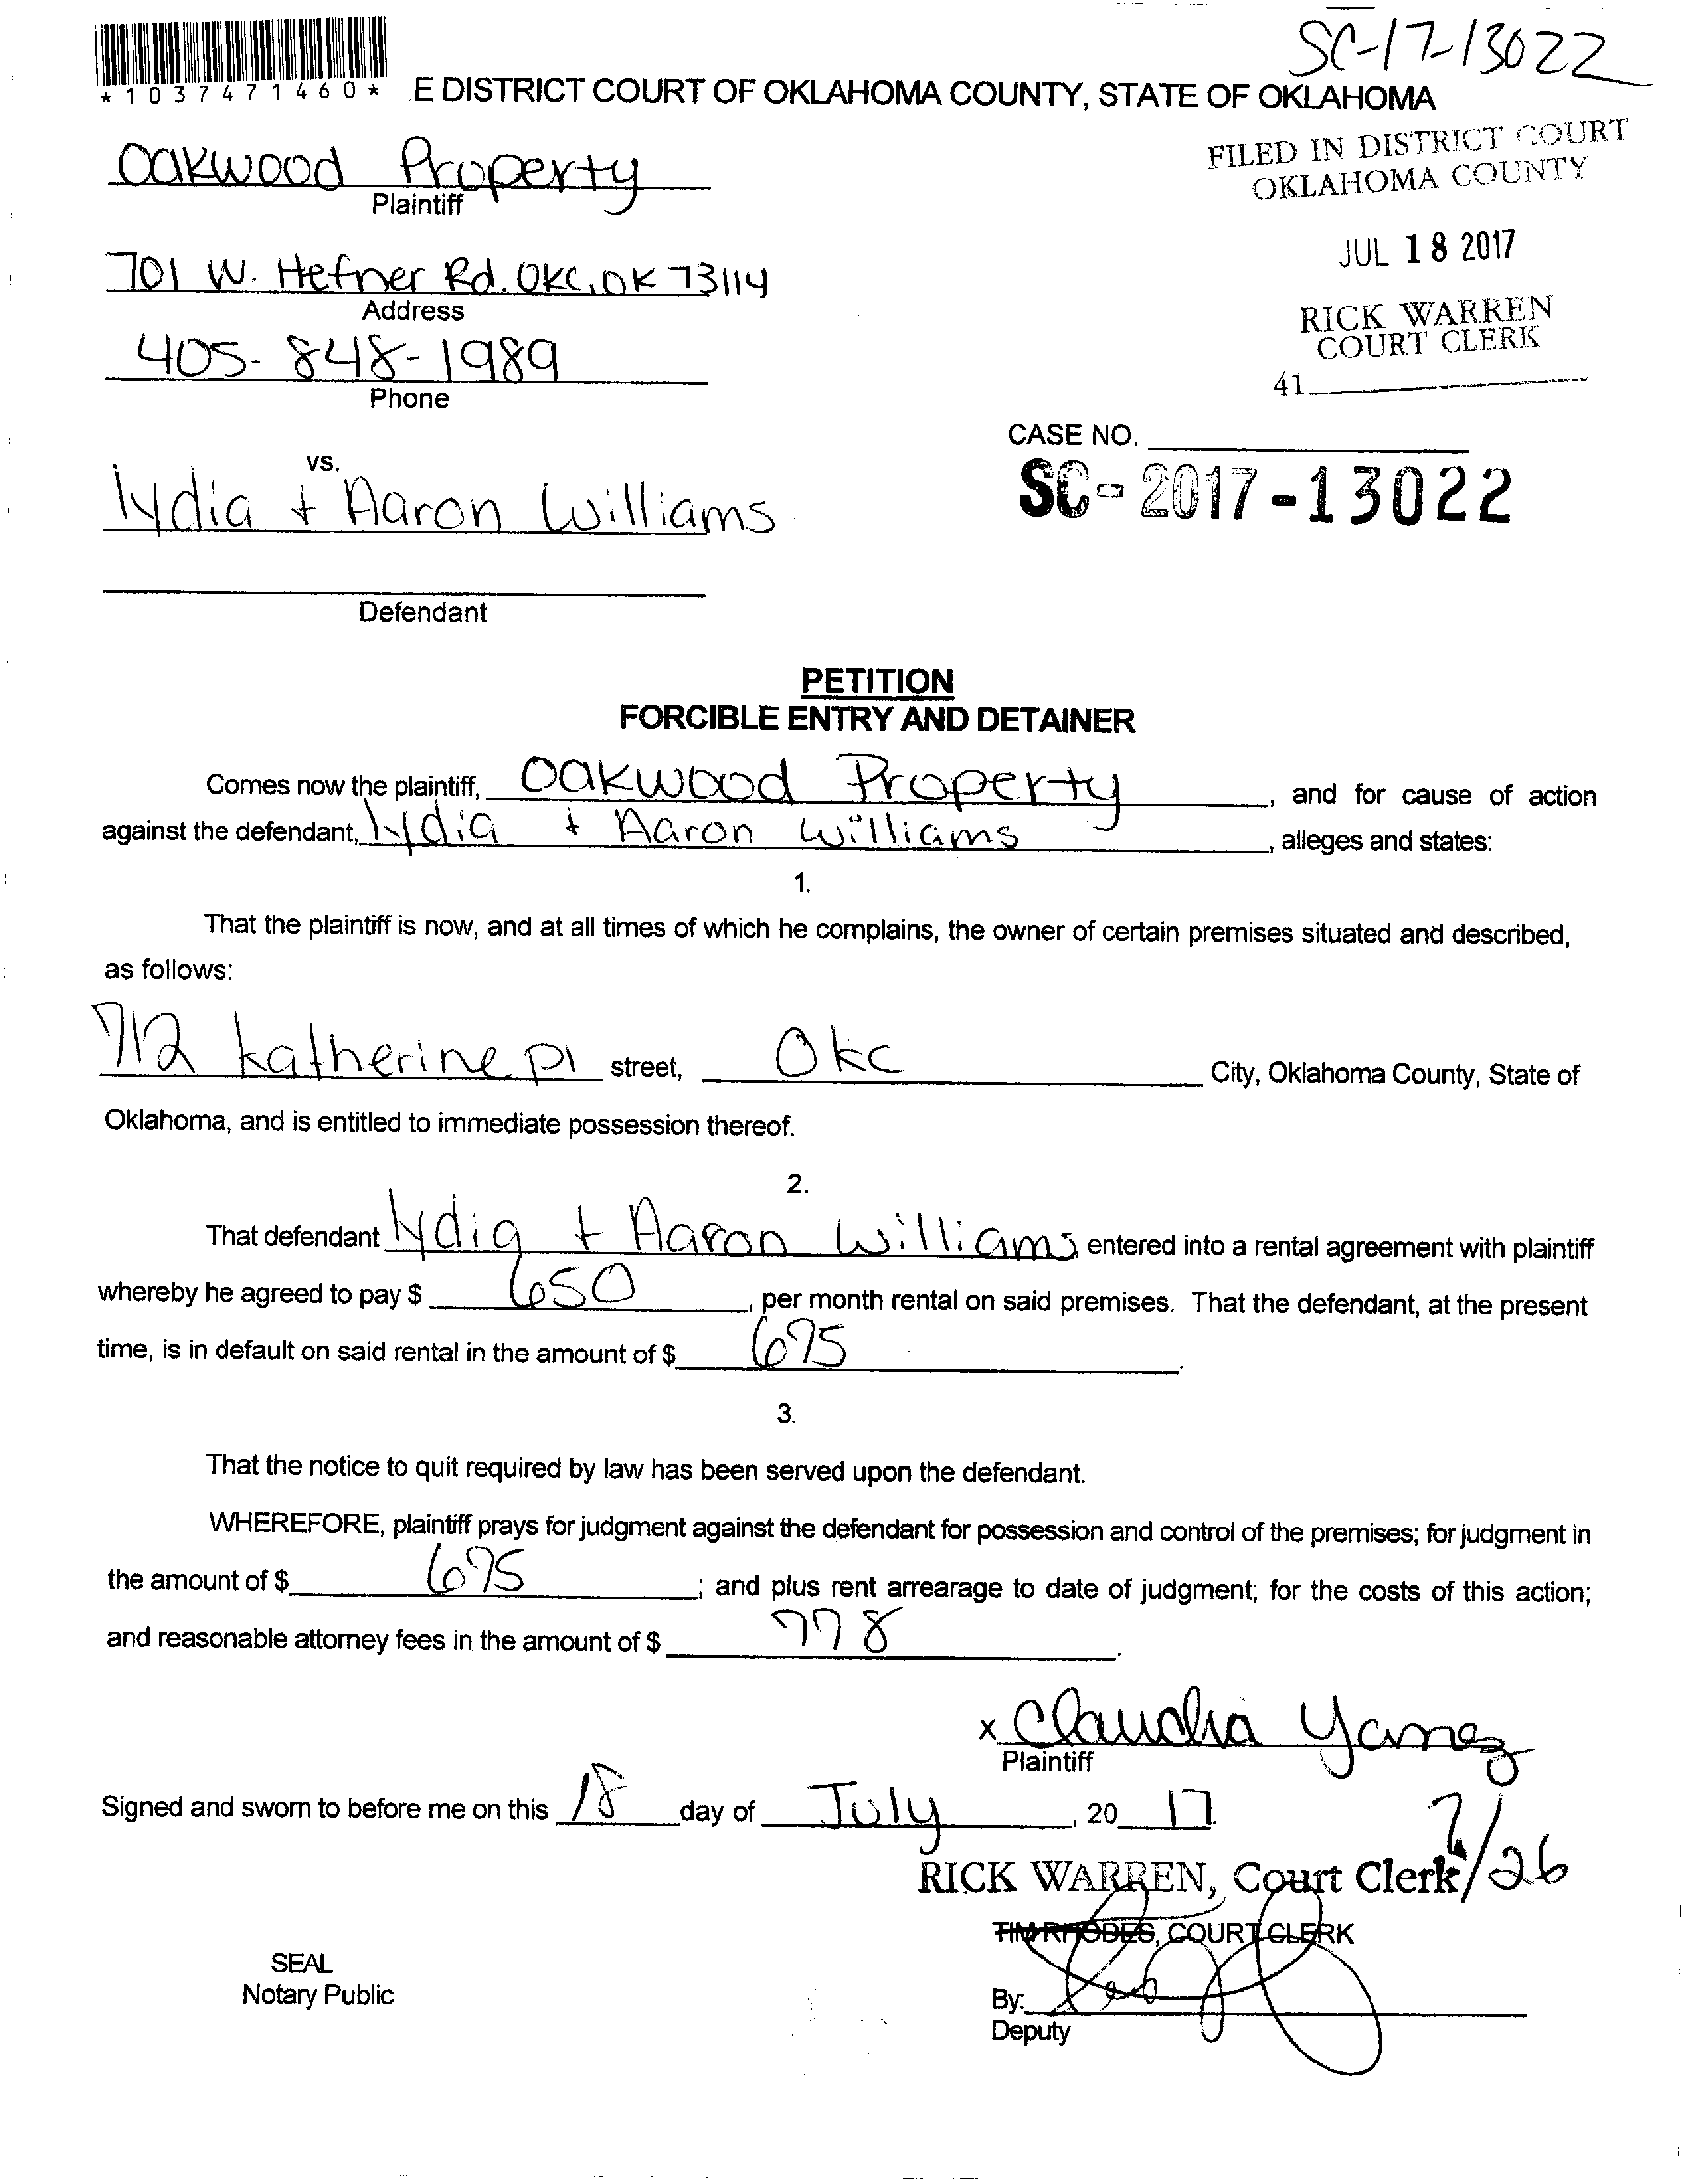 SC-17-13022
*1037471460* E DISTRICT COURT OF OKLAHOMA COUNTY, STATE OF OKLAHOMA
FILED IN DISTRICT COURT
OKLAHOMA COUNTY
Oakwood Property
Plaintiff
JUL 18 2017
701 W. Hefner Rd. OKC, OK 73114
Address
RICK WARREN
COURT CLERK
405-848-1989
Phone
41
CASE NO.
vs.
SC-2017-13022
lydia + Aaron Williams
Defendant
PETITION
FORCIBLE ENTRY AND DETAINER
Comes now the plaintiff, Oakwood Property, and for cause of action
against the defendant, lydia + Aaron Williams, alleges and states:
1.
That the plaintiff is now, and at all times of which he complains, the owner of certain premises situated and described,
as follows:
712 katherine pl street, Okc City, Oklahoma County, State of
Oklahoma, and is entitled to immediate possession thereof.
2.
That defendant lydia + Aaron Williams entered into a rental agreement with plaintiff
whereby he agreed to pay $ 650, per month rental on said premises. That the defendant, at the present
time, is in default on said rental in the amount of $ 675.
3.
That the notice to quit required by law has been served upon the defendant.
WHEREFORE, plaintiff prays for judgment against the defendant for possession and control of the premises; for judgment in
the amount of $ 675; and plus rent arrearage to date of judgment; for the costs of this action;
and reasonable attorney fees in the amount of $ 778.
x Claudia Yanez
Plaintiff
Signed and sworn to before me on this 18 day of July, 20 17.
7/26
RICK WARREN, Court Clerk
TIM RHODES, COURT CLERK
SEAL
Notary Public
By:
Deputy